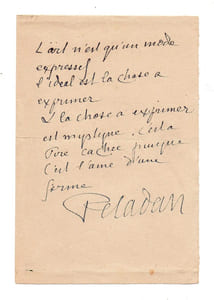 L'art n'est qu'un mode
expressel
l'idéal est la chose a
exprimer
& la chose a exprimer
est mystique . c'est a
Pore cachee puisque
C'est l'ame d'une
forme
Peladan